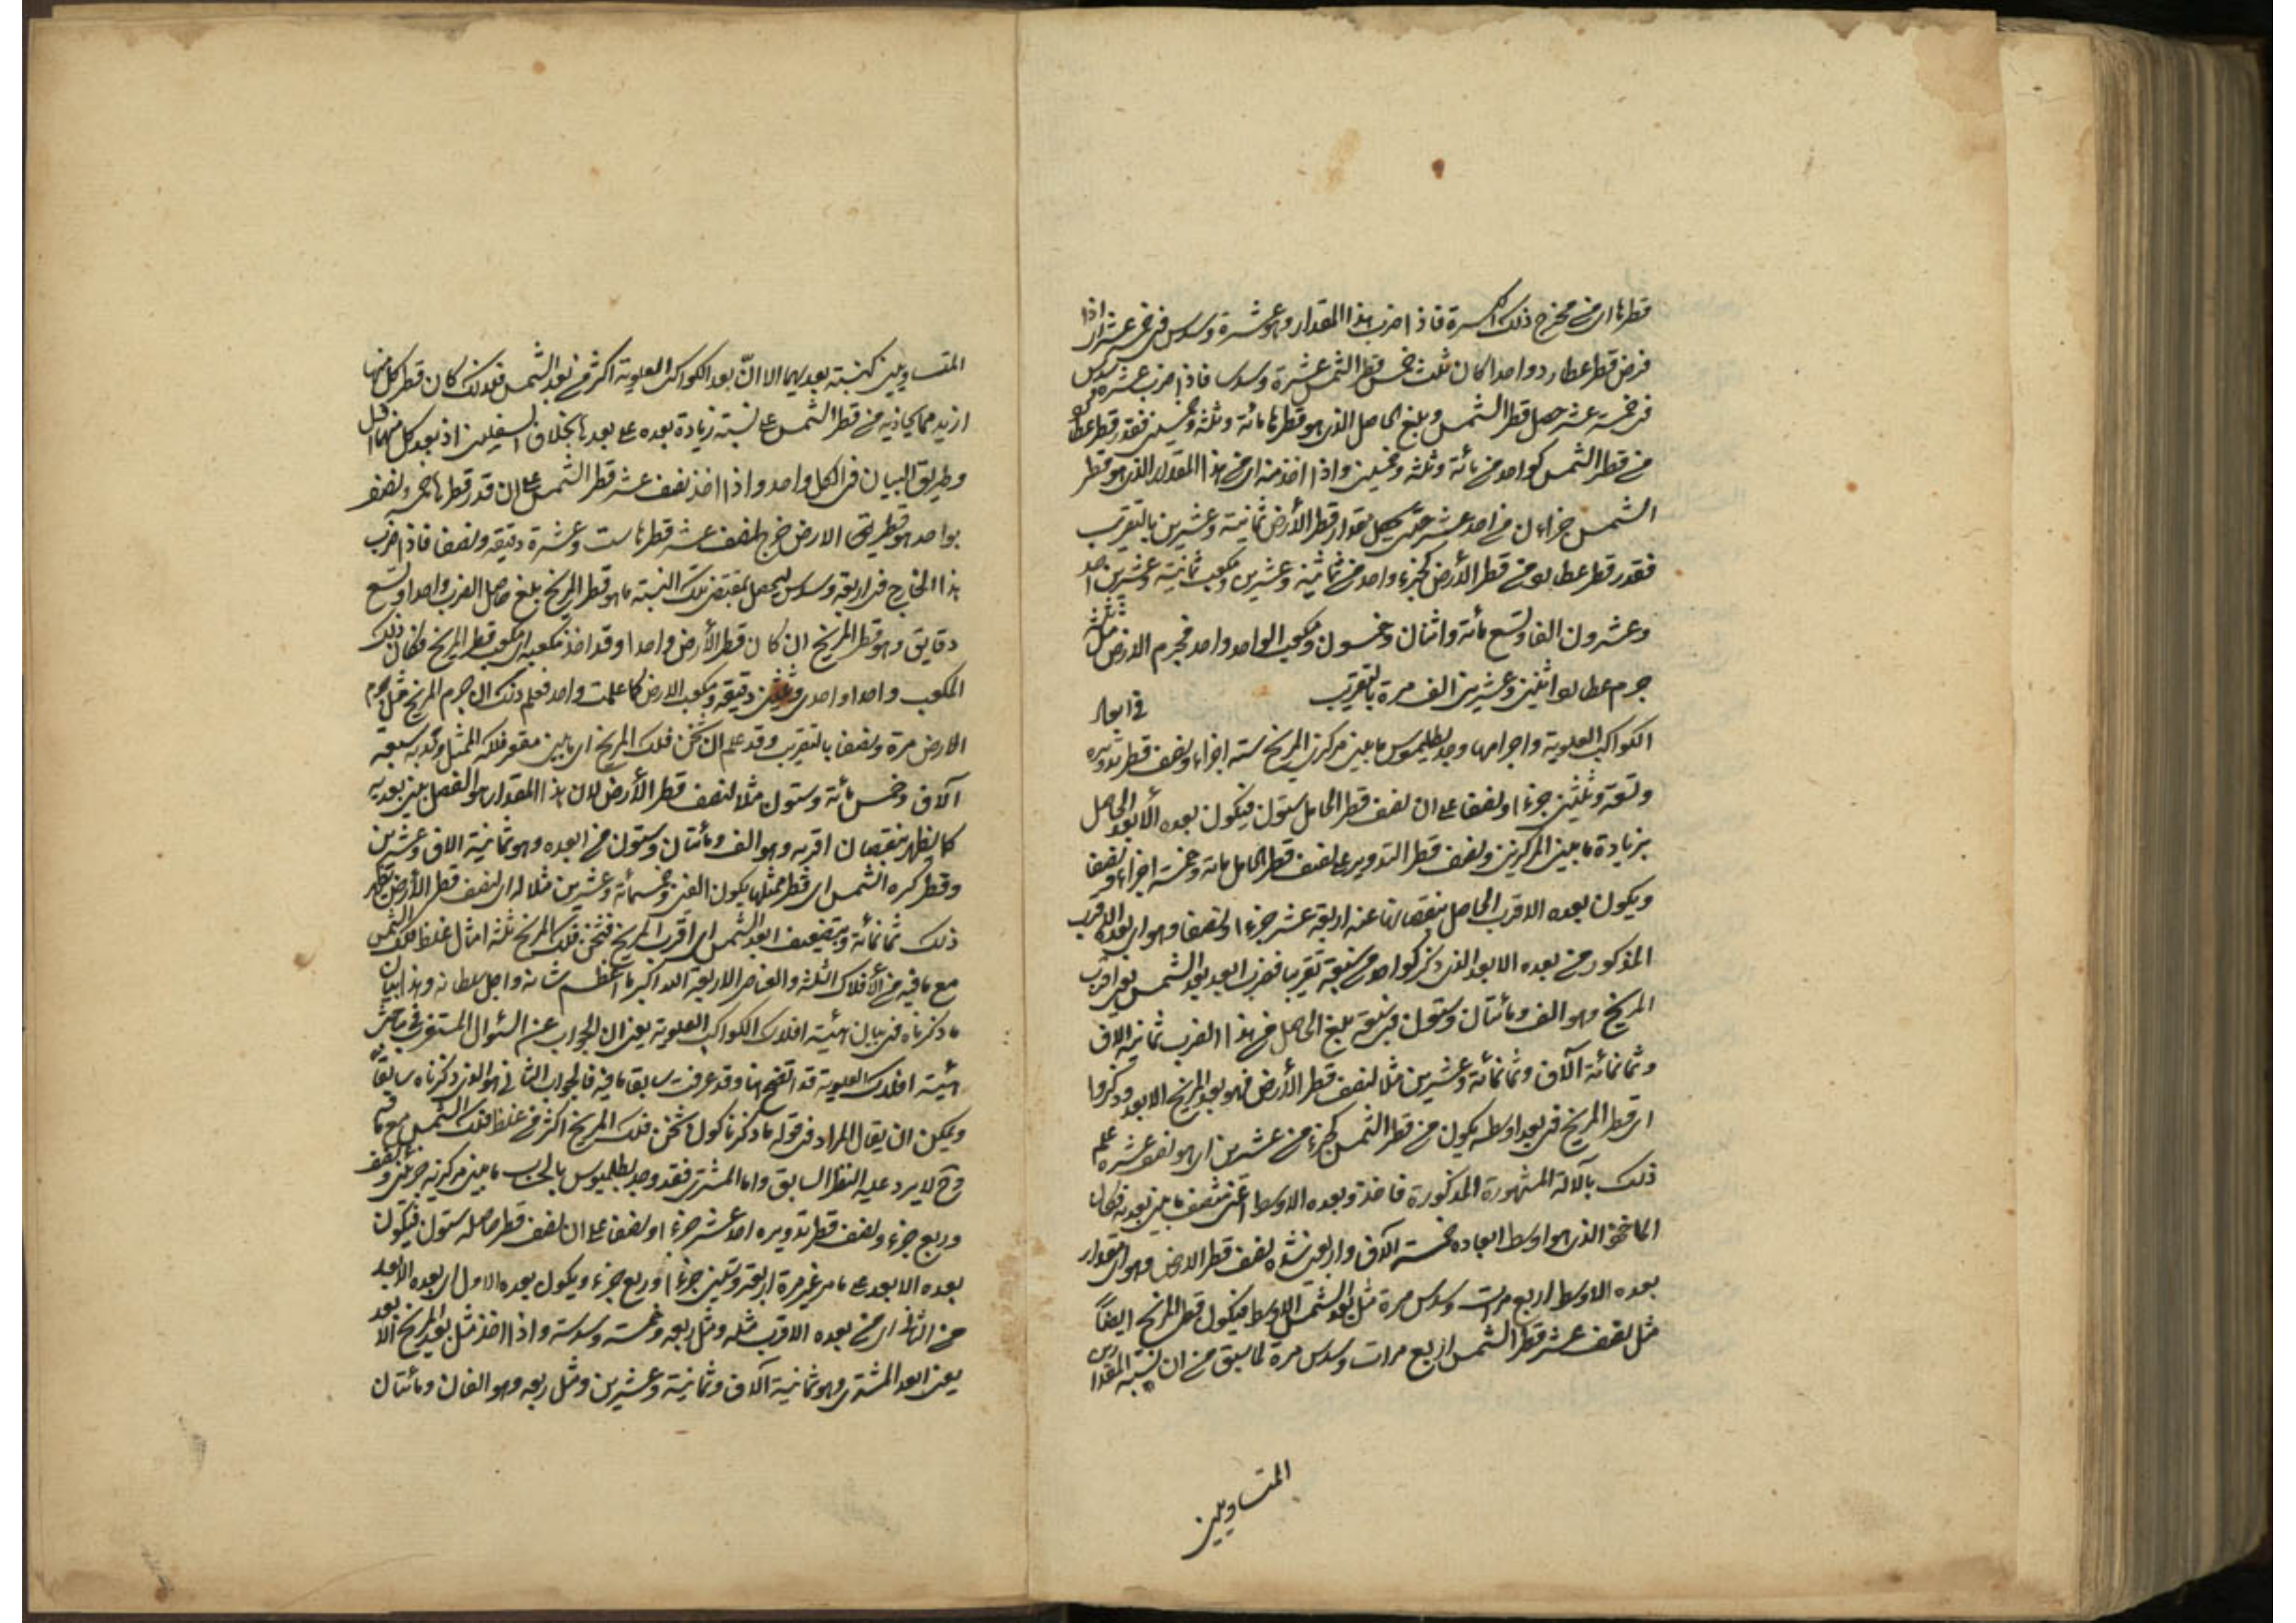 قطرها اى من مخرج ذلك الكسرة فاذا ضرب هذا المقدار وهو عشرة وسدس فى خمسة عشر اذا
فرض قطر عطارد واحدا كان ثلث خمس قطر الشمس عشرة وسدسا فاذا ضرب عشرة وسدس
فى خمسة عشر حصل قطر الشمس وبلغ الحاصل الذى هو قطرها مائة وثلثة وخمسين فقدر قطر عطارد
من قطر الشمس كواحد من مائة وثلثة وخمسين واذا اخذ منه اى من هذا المقدار الذى هو قطر
الشمس جزاءان من احد عشر حتى يحصل مقدار قطر الأرض ثمانية وعشرين بالتقريب
فقدر قطر عطارد من قطر الأرض كجزء واحد من ثمانية وعشرين ومكعب ثمانية وعشرين احد
وعشرون الفا وتسع مائة واثنان وخمسون ومكعب الواحد واحد فجرم الارض مثل
جرم عطارد اثنين وعشرين الف مرة بالتقريب فى ابعاد
الكواكب العلوية واجرامها وجد بطلميوس ما بين مركزى المريخ ستة اجزاء ونصف قطر تدويره
وتسعة وثلثين جزءا ونصفا على ان نصف قطر الحامل ستون فيكون بعده الأبعد الحاصل
بزيادة ما بين المركزين ونصف قطر التدوير على نصف قطر الحامل مائة وخمسة اجزاء ونصفا
ويكون بعده الاقرب الحاصل بنقصانها عنه اربعة عشر جزءا ونصفا وهو اى بعده الاقرب
المذكور من بعده الابعد الذى ذكر كواحد من سبعة تقريبا فضرب ابعد بعد الشمس يعنى اقرب
المريخ وهو الف ومائتان وستون فى سبعة بلغ الحاصل من هذا الضرب ثمانية الاف
وثمانمائة آلاف وثمانمائة وعشرين مثلا لنصف قطر الأرض فهو بعد المريخ الابعد وذكروا
اى قطر المريخ فى بعد اوسطه يكون من قطر الشمس كجزء من عشرين اى هو نصف عشره علم
ذلك بالآلة المشهورة المذكورة فاخذ وبعده الاوسط اعنى منتصف ما بين بعديه فكان
الماخوذ الذى هو اوسط ابعاده خمسة آلاف واربعين نصف قطر الارض وهو اى مقدار
بعده الاوسط اربع مرات وسدس مرة مثل بعد الشمس الاوسط فيكون قطر المريخ ايضاً
مثل نصف عشر قطر الشمس اربع مرات وسدس مرة لما سبق من ان نسبة المقدارين
المتساويين
المتساويين كنسبة بعديهما الا ان بعد الكواكب العلوية اكثر من بعد الشمس فلذلك كان قطر كل منها
ازيد مما يحاذيه من قطر الشمس على نسبة زيادة بعده على بعدها بخلاف السفليين اذ بعد كل منهما اقل
وطريق البيان فى الكل واحد واذا اخذ نصف عشر قطر الشمس على ان قدر قطرها خمسة ونصف
بواحد هو قطر الارض خرج نصف عشر قطرها ست وعشرة دقيقة ونصفا فاذا ضرب
هذا الخارج فى اربعة وسدس ليحصل بمقتضى تلك النسبة ما هو قطر المريخ بلغ حاصل الضرب واحدا وتسع
دقايق وهو قطر المريخ ان كان قطر الأرض واحدا وقد اخذ مكعبه اى مكعب قطر المريخ فكان ذلك
المكعب واحدا واحدى وثلثين دقيقة ومكعب الارض كما علمت واحد فعلم من ذلك ان جرم المريخ مثل جرم
الارض مرة ونصفا بالتقريب وقد علم ان ثخن فلك المريخ اى ما بين مقعر فلكه الممثل ومحدبه سبعة
آلاف وخمس مائة وستون مثلا لنصف قطر الأرض لان هذا المقدار هو الفضل بين بعديه
كما يظهر بنقصان اقربه وهو الف ومائتان وستون من ابعده وهو ثمانية الاف وعشرين
وقطر كره الشمس اى قطر ممثلها يكون الفين وخمسمائة وعشرين مثلا له اى لنصف قطر الأرض يظهر
ذلك ثمانمائة وبتضعيف ابعد الشمس اى اقرب المريخ فثخن فلك المريخ ثلثة امثال غلظ فلك الشمس
مع ما فيه من الأفلاك الثلثة والعناصر الاربعة الله اكبر ما اعظم شانه واجل سلطانه وهذا بيان
ما ذكرناه فى بيان هيئة افلاك الكواكب العلوية يعنى ان الجواب عن السئوال المستغرب فى مباحث
هيئة افلاك العلوية قد اتضح هنا وقد عرفت سابقا ما فيه فالجواب الثانى هو الذى ذكرناه سابقا
ويمكن ان يقال المراد فى قوله ما ذكرنا كون ثخن فلك المريخ اكثر من غلظ فلك الشمس مع ما فيه
وح لا يرد عليه النظر السابق واما المشترى فقد وجد بطلميوس بالحساب ما بين مركزيه جزئين ونصف
وربع جزء ونصف قطر تدويره احد عشر جزءا ونصفا على ان نصف قطر حامله ستون فيكون
بعده الابعد على ما مر غير مرة اربعة وسبعين جزءا وربع جزء ويكون بعده الاول اى بعده الابعد
من الثانى اى من بعده الاقرب مثله ومثل ربعه وخمسة وسدسه واذا اخذ مثل بعد المريخ الابعد
يعنى ابعد المشترى وهو ثمانية آلاف وثمانية وعشرين ومثل ربعه وهو الفان ومائتان